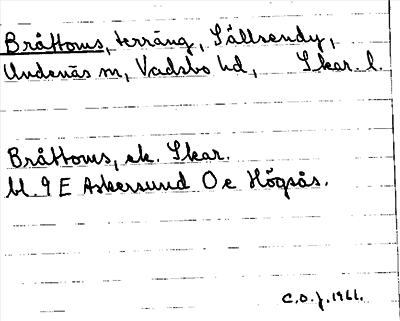 Bråttoms, terräng, Sällsendy,
Undenäs sn, Vadsbo hd, Skar. l.
Bråttoms, ek. Skar.
bl. 9 E Askersund O c Högsås.
C.O.J. 1966.